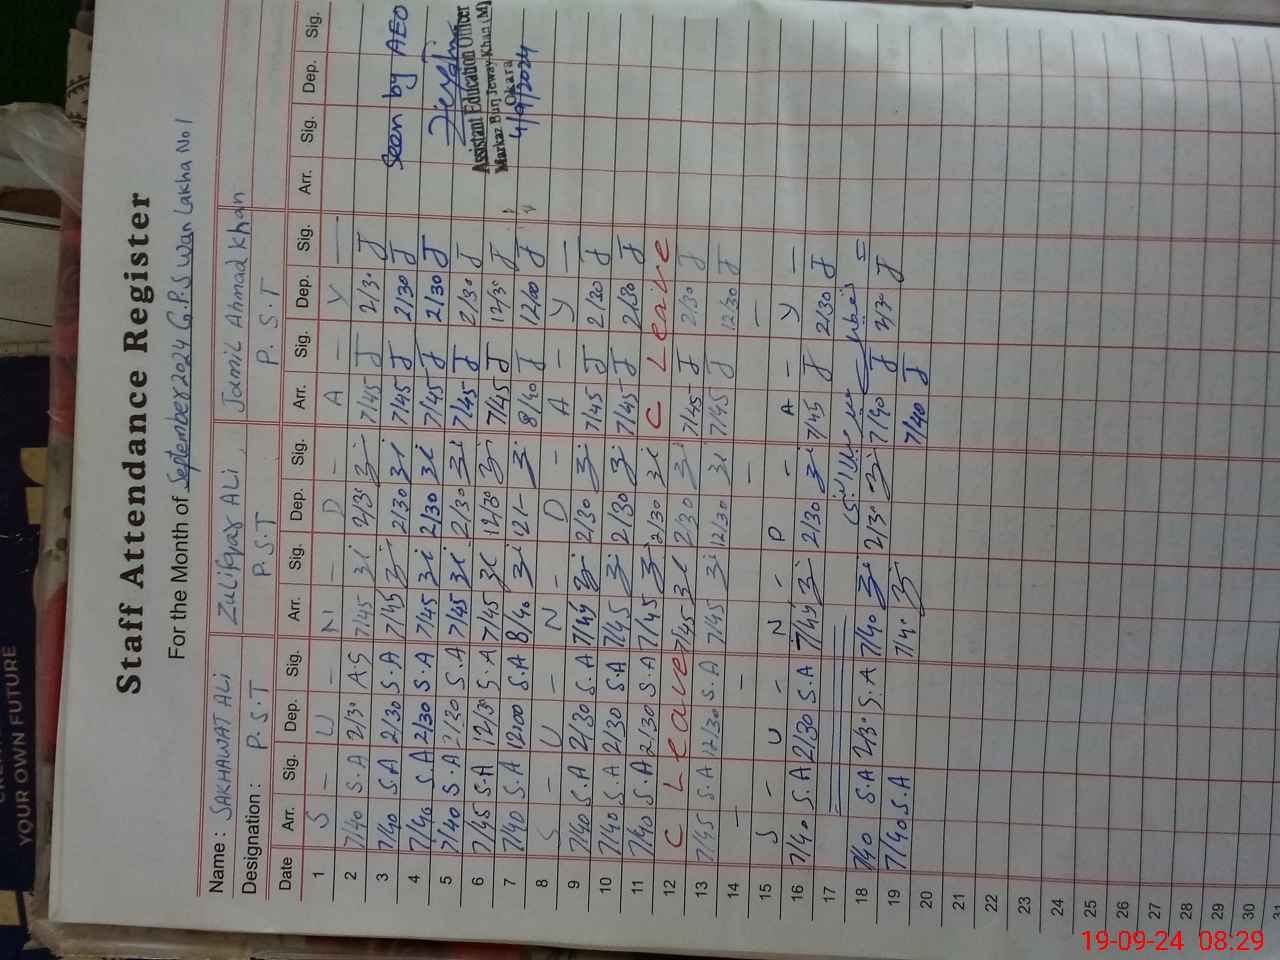 Staff Attendance Register
For the Month of September 2024 G.P.S Wan Lakha No 1
Name: SAKHAWAT ALI Zulifqar ALI, Jamil Ahmad Khan
Designation: P.S.T P.S.T P.S.T
Date Arr. Sig. Dep. Sig. Arr. Sig. Dep. Sig. Arr. Sig. Dep. Sig. Arr. Sig. Dep. Sig.
1 S - U - N - D - A - Y -
2 7/40 S.A 2/30 A.S 7/45 3i 2/30 3i 7/45 J 2/30 J
3 7/40 S.A 2/30 S.A 7/45 3i 2/30 3i 7/45 J 2/30 J
4 7/40 S.A 2/30 S.A 7/45 3i 2/30 3i 7/45 J 2/30 J
5 7/40 S.A 2/30 S.A 7/45 3i 2/30 3i 7/45 J 2/30 J
6 7/45 S.A 12/30 S.A 7/45 3i 12/30 3i 7/45 J 12/30 J
7 7/40 S.A 1200 S.A 8/40 3i 12/- 3i 8/40 J 12/00 J
8 S - U - N - D - A - Y -
9 7/40 S.A 2/30 S.A 7/45 3i 2/30 3i 7/45 J 2/30 J
10 7/40 S.A 2/30 S.A 7/45 3i 2/30 3i 7/45 J 2/30 J
11 7/40 S.A 2/30 S.A 7/45 3i 2/30 3i C Leaive
12 C Leave 7/45 3i 2/30 3i 7/45 J 2/30 J
13 7/45 S.A 12/30 S.A 7/45 3i 12/30 3i 7/45 J 12/30 J
14 - - - -
15 S - U - N - D - A - Y -
16 7/40 S.A 2/30 S.A 7/45 3i 2/30 3i 7/45 J 2/30 J
17
18 7/40 S.A 2/30 S.A 7/40 3i 2/30 3i 7/40 J 2/30 J
19 7/40 S.A 7/40 3i 7/40 J
20
21
22
23
24
25
26
27
28
29
30
31
Seen by AEO
Assistant Education Officer
Markaz Bun Jeway Khan (M)
Okara
4/9/2024
YOUR OWN FUTURE
19-09-24 08:29